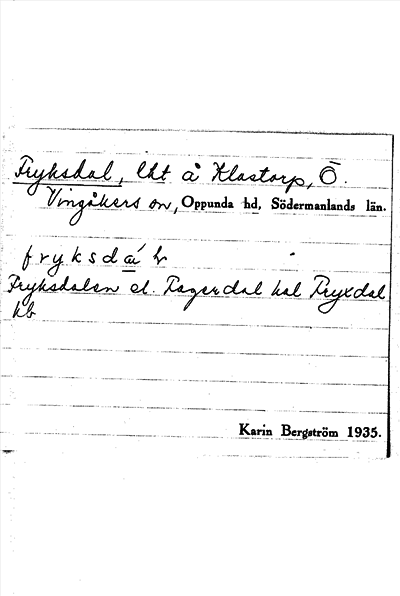 Fryksdal, lht å Klastorp, Ö.
Vingåkers sn, Oppunda hd, Södermanlands län.
fryksdá
Fryksdalen el. Fagerdal kal Fryxdal
kb
Karin Bergström 1935.